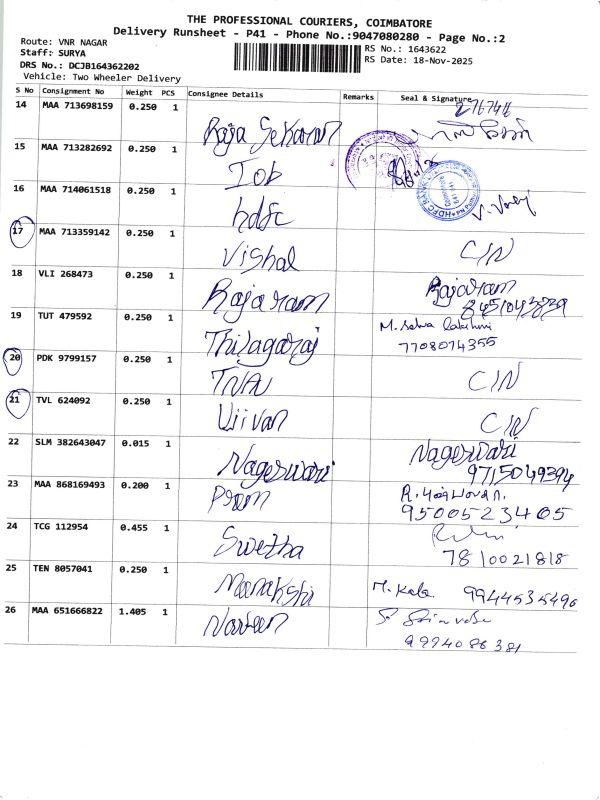 THE PROFESSIONAL COURIERS, COIMBATORE
Delivery Runsheet - P41 - Phone No.:9047080280 - Page No.:2
Route: VNR NAGAR
RS No.: 1643622
Staff: SURYA
RS Date: 18-Nov-2025
DRS No.: DCJB164362202
Vehicle: Two Wheeler Delivery
S No Consignment No Weight PCS Consignee Details Remarks Seal & Signature
14 MAA 713698159 0.250 1 Raja Sekaran
15 MAA 713282692 0.250 1 Iob
16 MAA 714061518 0.250 1 hdfc HDFC BANK
17 MAA 713359142 0.250 1 Vishal C/N
18 VLI 268473 0.250 1 Rajaram Rajaram
8451043839
19 TUT 479592 0.250 1 Thilagaraj M. Selva Lakshmi
7708074355
20 PDK 9799157 0.250 1 TNA C/N
21 TVL 624092 0.250 1 Ujivan C/N
22 SLM 382643047 0.015 1 Nageswari Nageswari
9715049394
23 MAA 868169493 0.200 1 Prem
9500523405
24 TCG 112954 0.455 1 Swetha
7810021818
25 TEN 8057041 0.250 1 Meenakshi M. Kala 9944535496
26 MAA 651666822 1.405 1 Naveen
9994086381